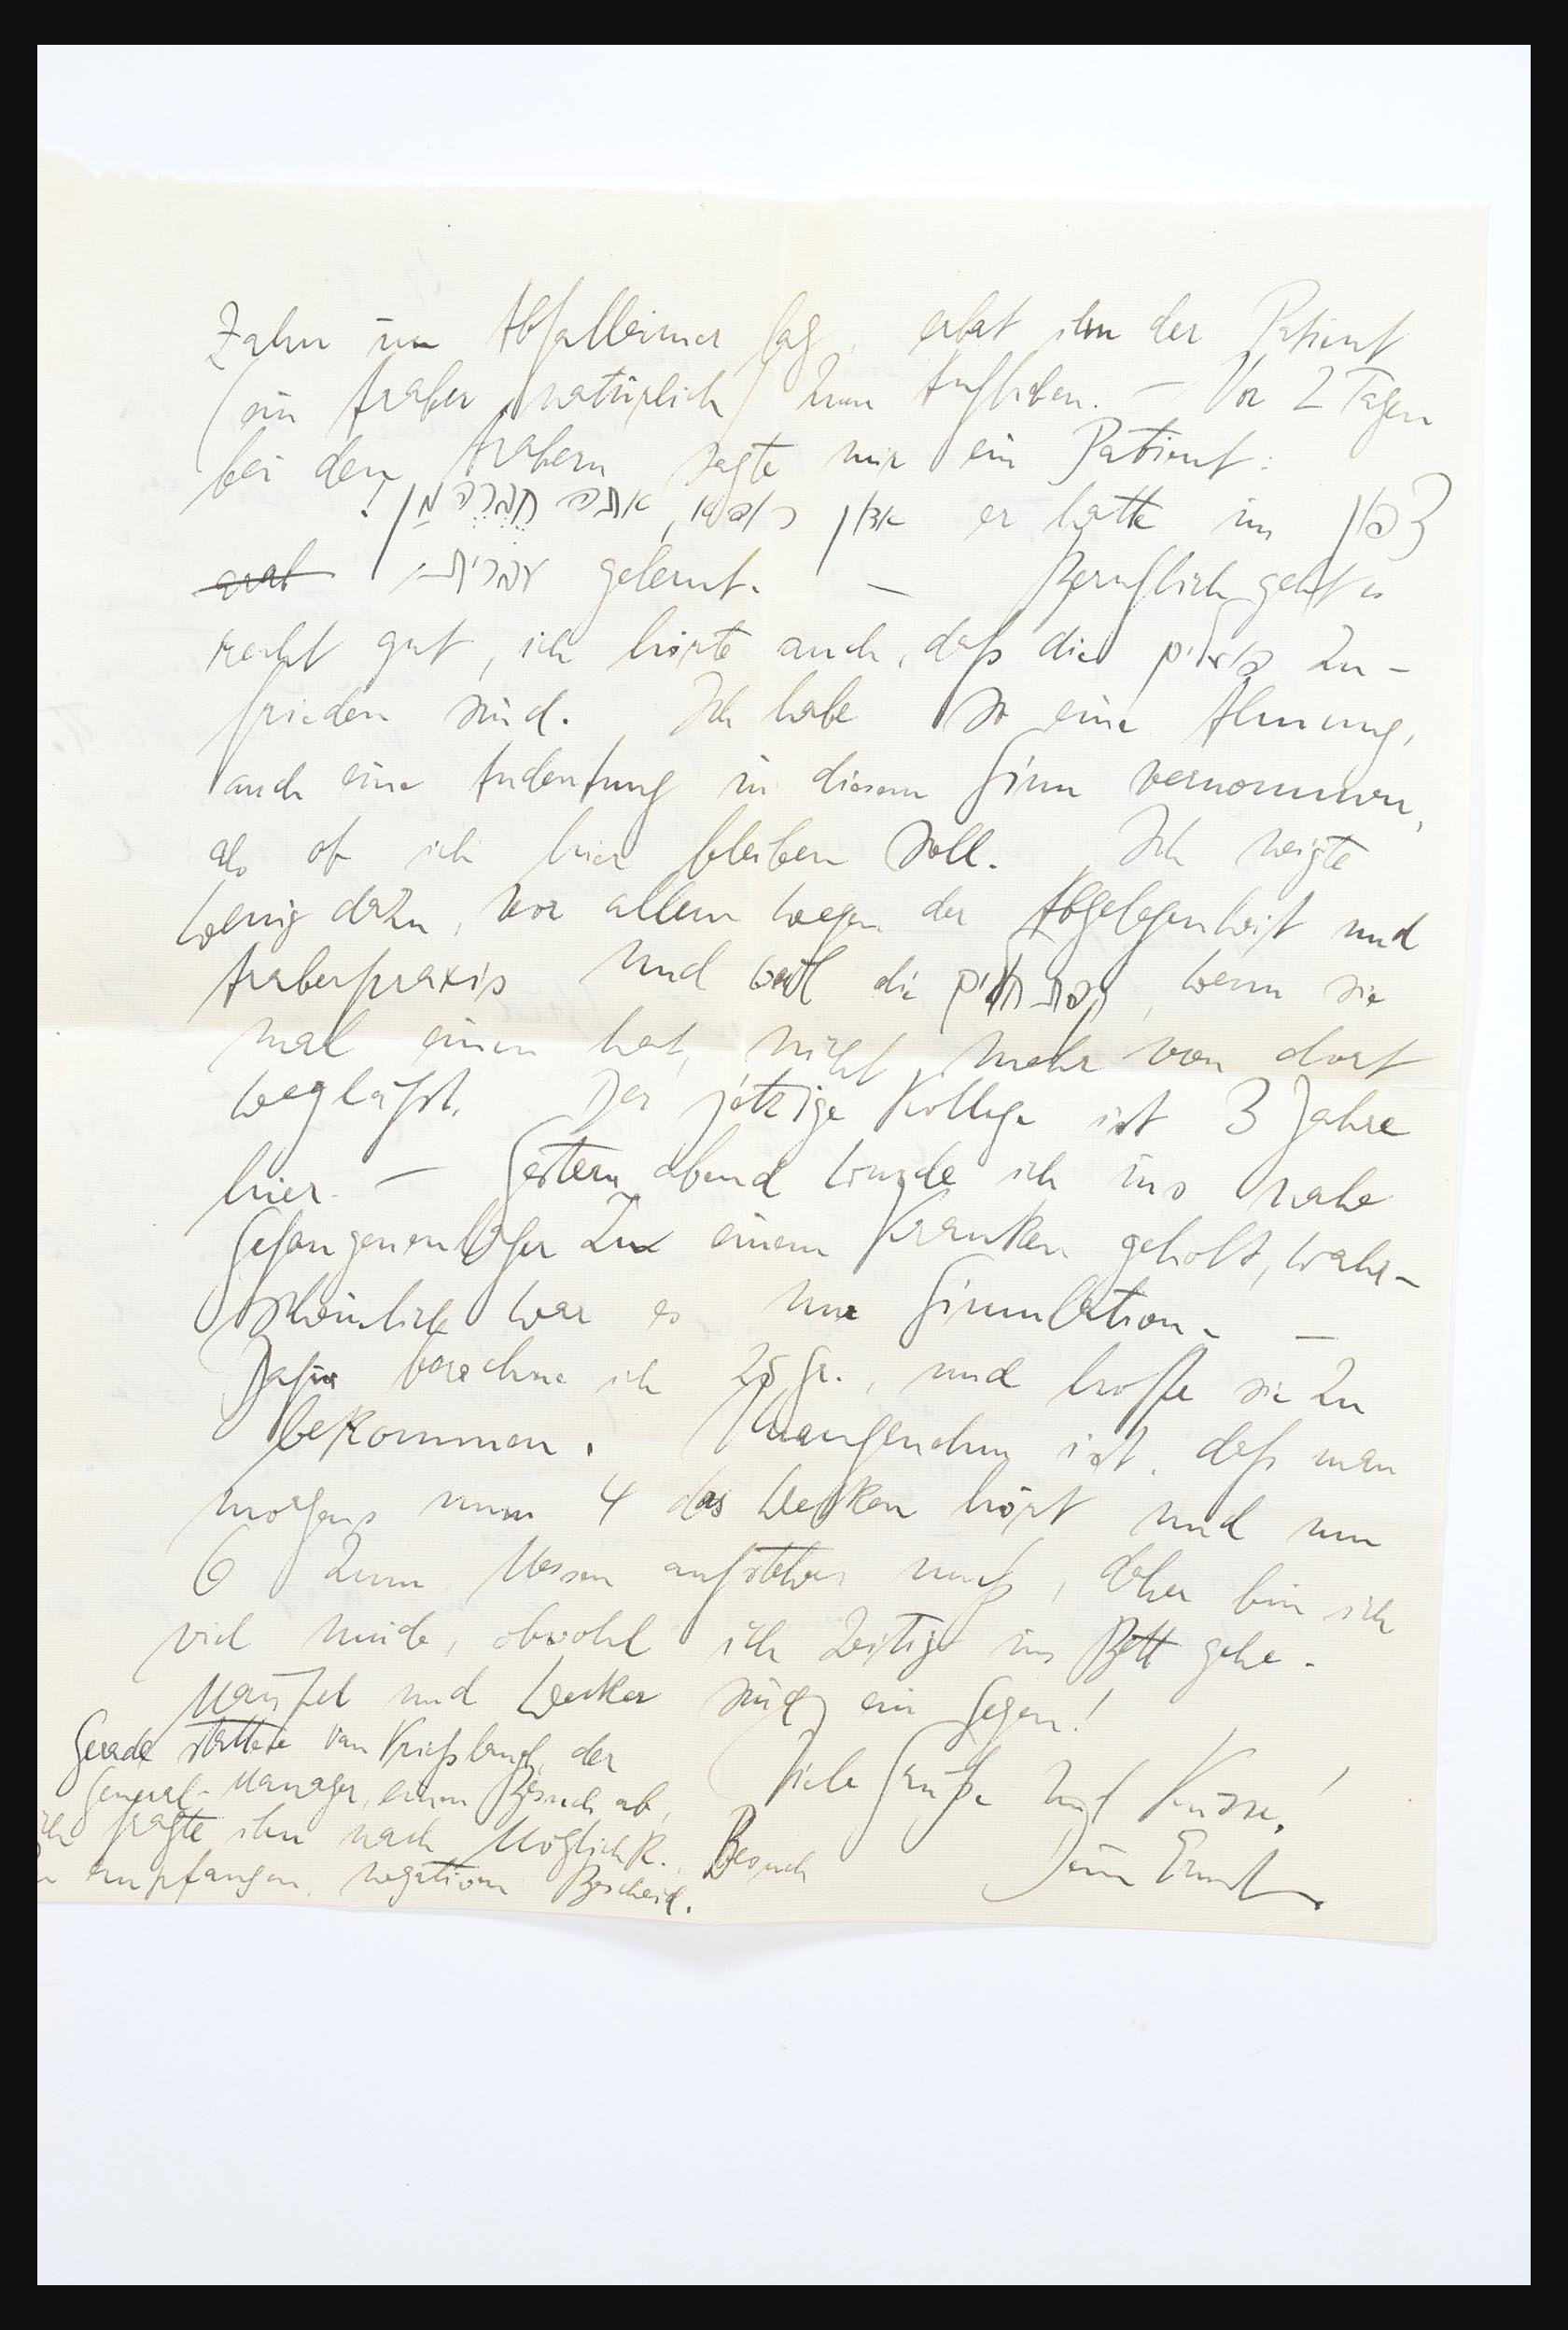 Zahn im Abfalleimer lag, erbat ihn der Patient
(ein Araber natürlich) zum Aufheben. — Vor 2 Tagen
bei den Arabern sagte mir ein Patient:
אדון רופא, אתה חברה מַן! er hatte im
arab עברית gelernt. — Beruflich geht es
recht gut, ich hörte auch, daß die zu-
frieden sind. Ich habe so eine Ahnung,
auch eine Andeutung in diesem Sinn vernommen,
als ob ich hier bleiben soll. Ich neigte
wenig dazu, vor allem wegen der Abgelegenheit und
Araberpraxis und weil die קופת חולים, wenn sie
mal einen hat, nicht mehr von dort
wegläßt. Der jetzige Kollege ist 3 Jahre
hier. — Gestern abend wurde ich ins nahe
Gefangenenlager zu einem Kranken geholt, wahr-
scheinlich war es nur Simulation. —
Dafür berechne ich 25 Gr., und hoffe sie zu
bekommen. Unangenehm ist, daß man
morgens um 4 das Wecken hört und um
6 zum Essen aufstehen muß, daher bin ich
viel müde, obwohl ich zeitig ins Bett gehe.
Mantel und Wecker sind ein Segen!
Viele Grüße und Küsse!
Dein Ernst.
Gerade stattete van Vrießland, der
General-Manager, einen Besuch ab,
ich fragte ihn nach Möglichk. Besuch
empfangen, negativen Bescheid.